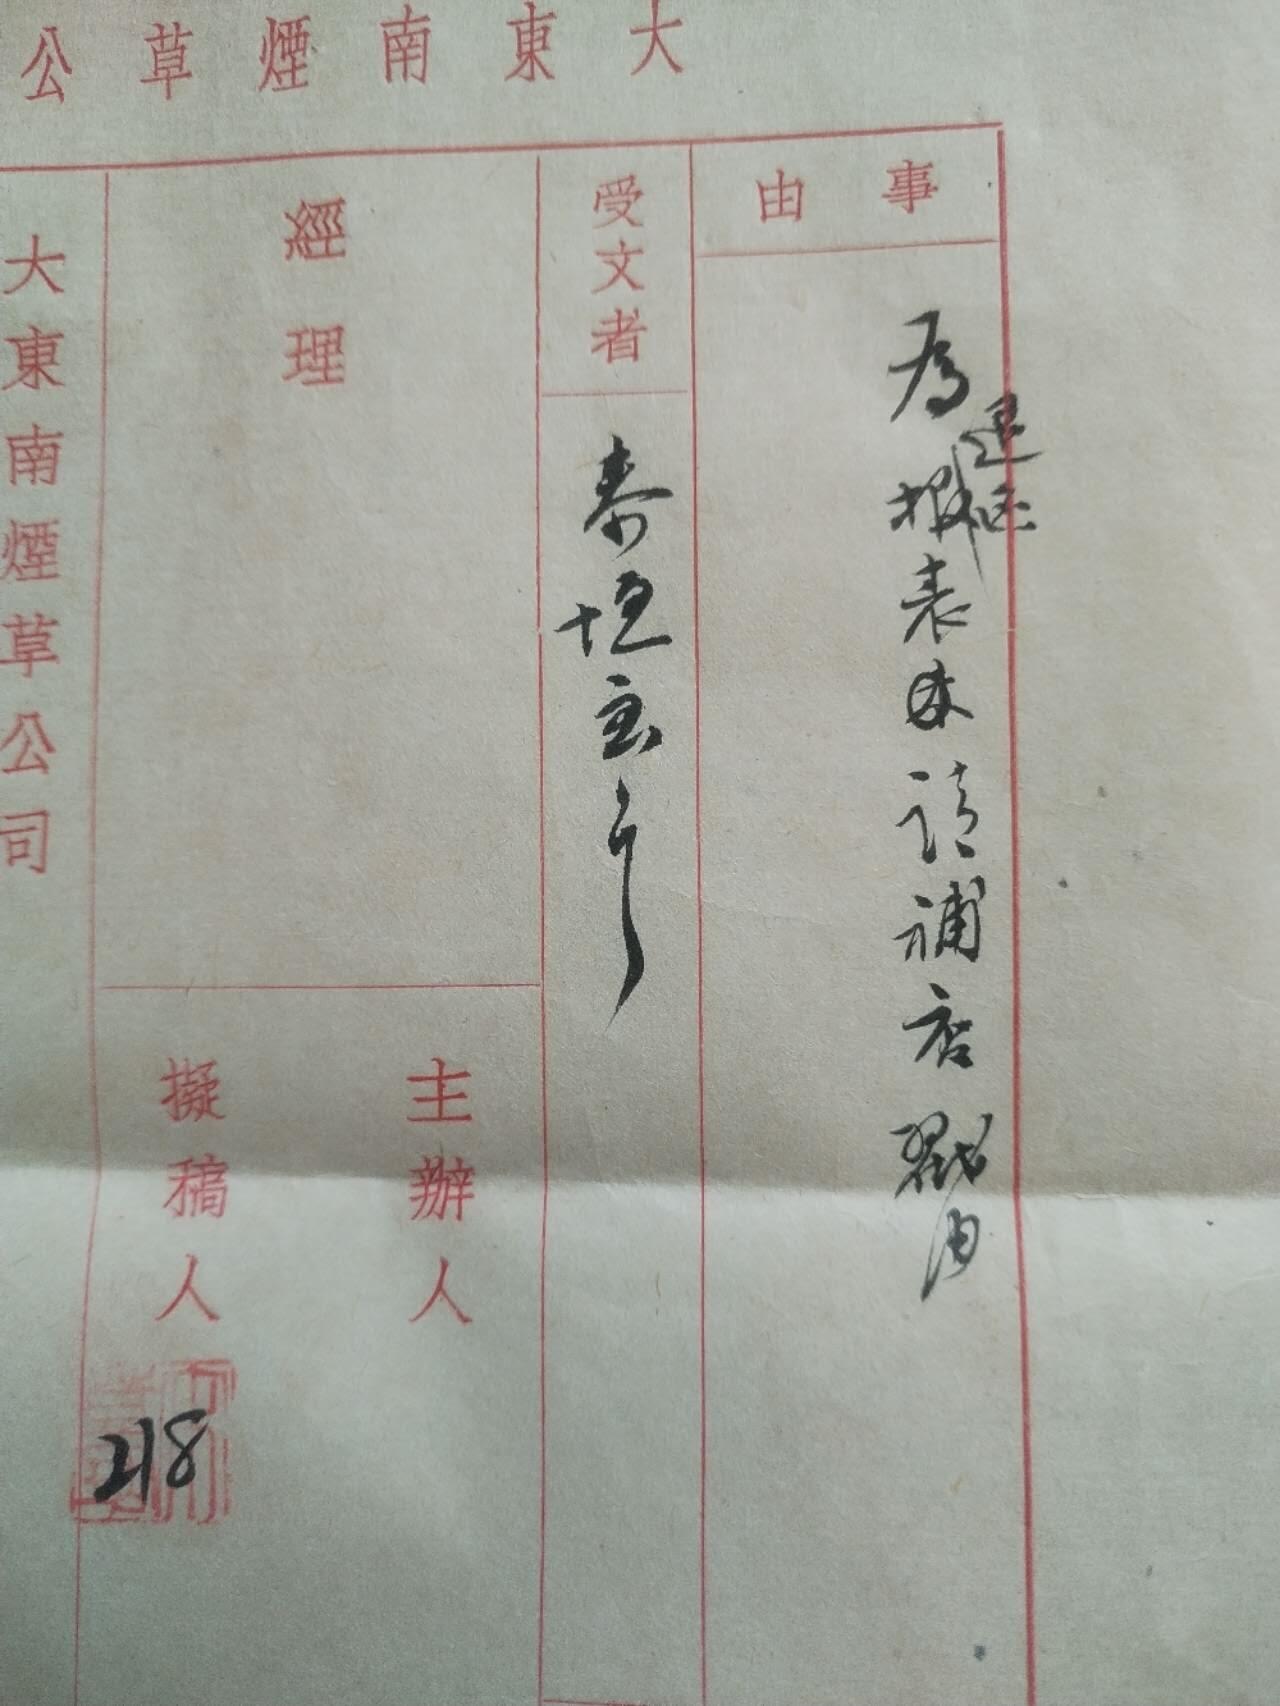 大東南煙草公
事由
為報表退還請補店戳由
受文者
泰垣主
經理
主辦人
擬稿人
218
大東南煙草公司